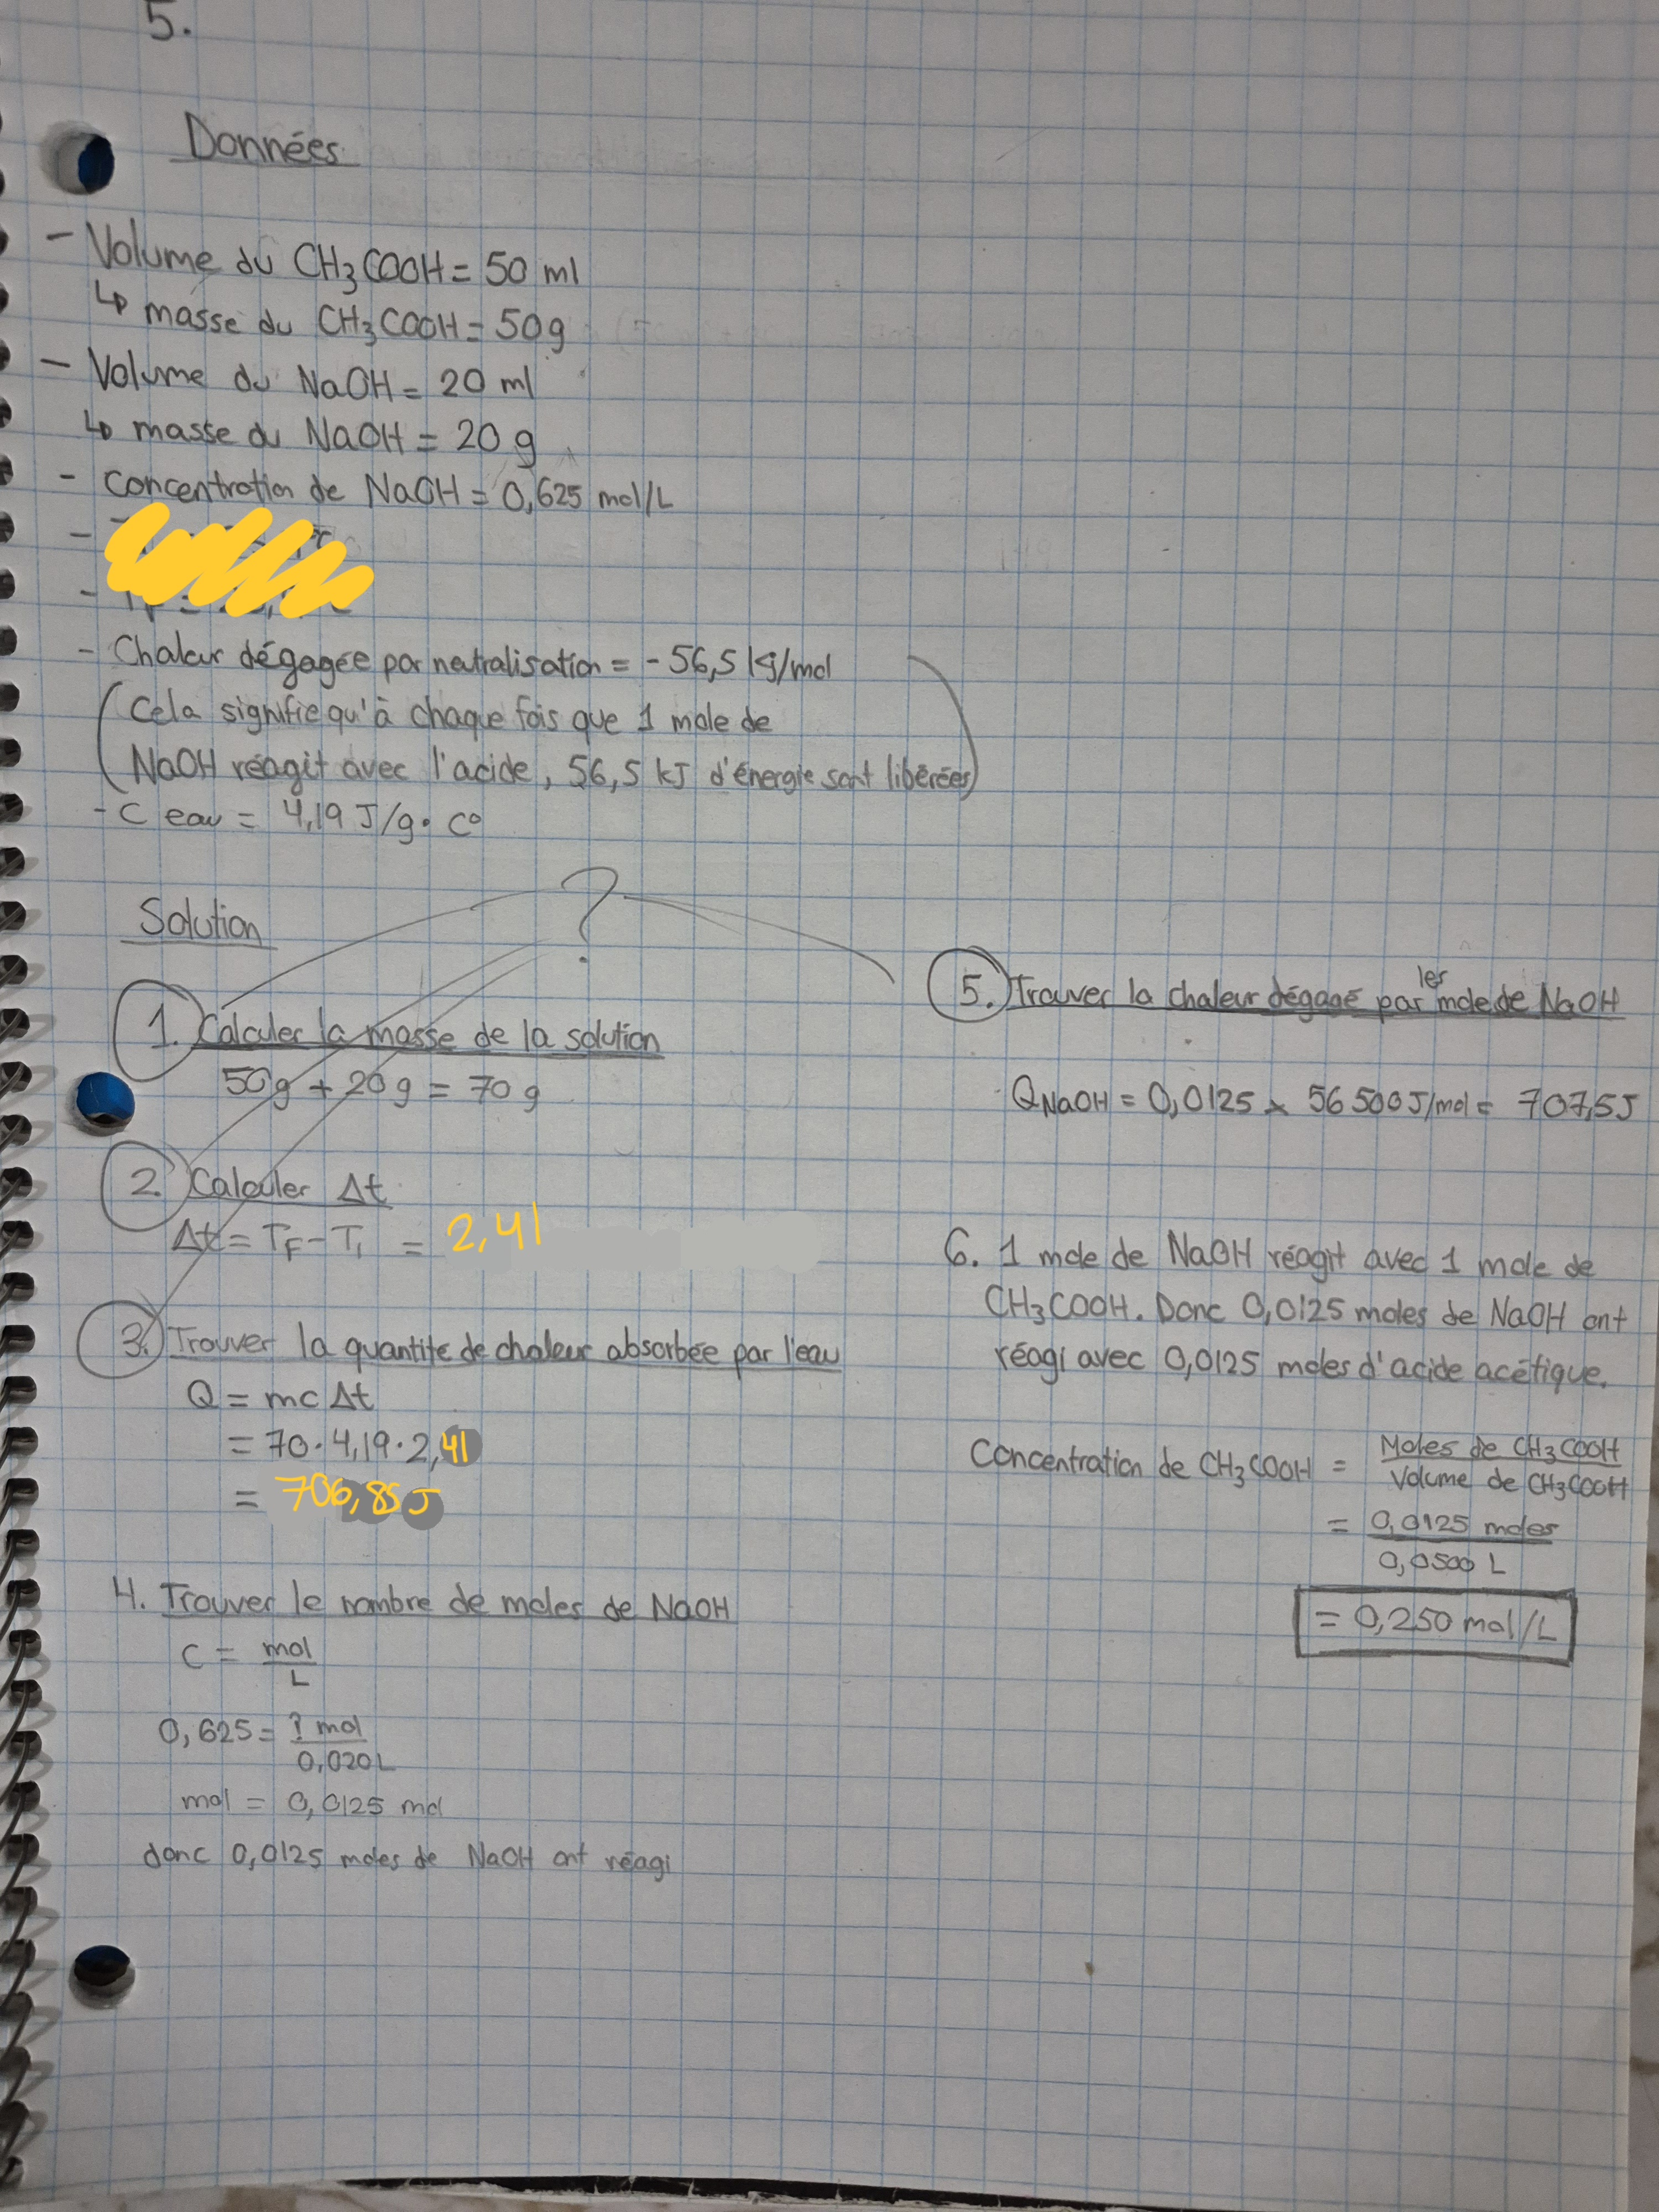 5.
Données
- Volume du CH₃COOH = 50 ml
↳ masse du CH₃COOH = 50g
- Volume du NaOH = 20 ml
↳ masse du NaOH = 20 g
- Concentration de NaOH = 0,625 mol/L
-
-
- Chaleur dégagée par neutralisation = -56,5 kJ/mol
(Cela signifie qu'à chaque fois que 1 mole de
NaOH réagit avec l'acide, 56,5 kJ d'énergie sont libérées)
- C eau = 4,19 J/g · C°
?
Solution
1. Calculer la masse de la solution
50g + 20g = 70 g
2. Calculer Δt
Δt = TF - Ti = 2,41
3. Trouver la quantité de chaleur absorbée par l'eau
Q = mcΔt
= 70 · 4,19 · 2,41
= 706,85 J
4. Trouver le nombre de moles de NaOH
C = mol/L
0,625 = ? mol/0,020L
mol = 0,0125 mol
donc 0,0125 moles de NaOH ont réagi
5. Trouver la chaleur dégagé par les mole de NaOH
QNaOH = 0,0125 × 56 500 J/mol = 707,5J
6. 1 mole de NaOH réagit avec 1 mole de
CH₃COOH. Donc 0,0125 moles de NaOH ont
réagi avec 0,0125 moles d'acide acétique.
Concentration de CH₃COOH = Moles de CH₃COOH/Volume de CH₃COOH
= 0,0125 moles/0,0500 L
= 0,250 mol/L